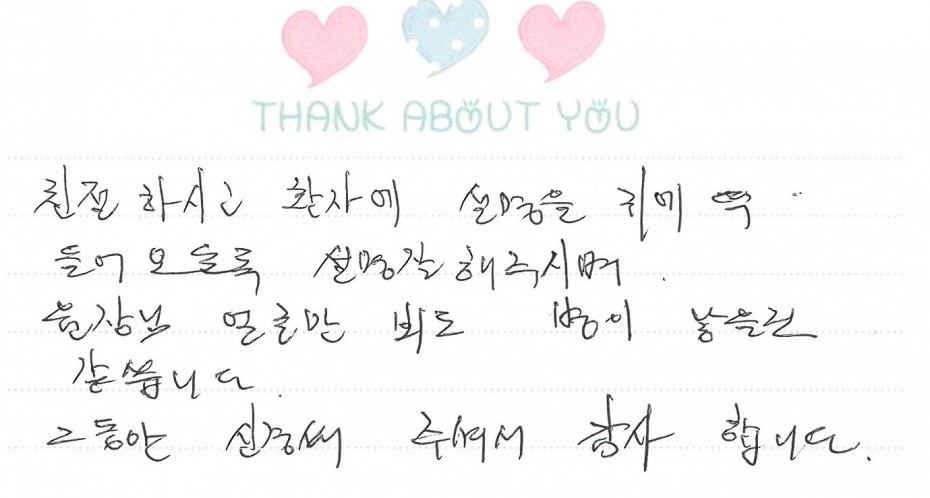 THANK ABOUT YOU
친절 하시고 환자에 설명을 귀에 딱
들어 오도록 설명잘 해주시며.
원장님 얼굴만 봐도 병이 낳을것
같씁니다.
그동안 신경써 주셔서 감사 합니다.